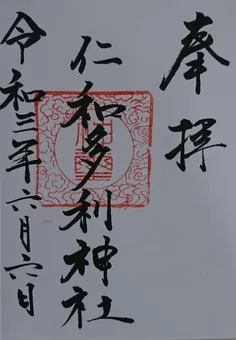 奉拝
仁和多利神社
令和三年六月六日